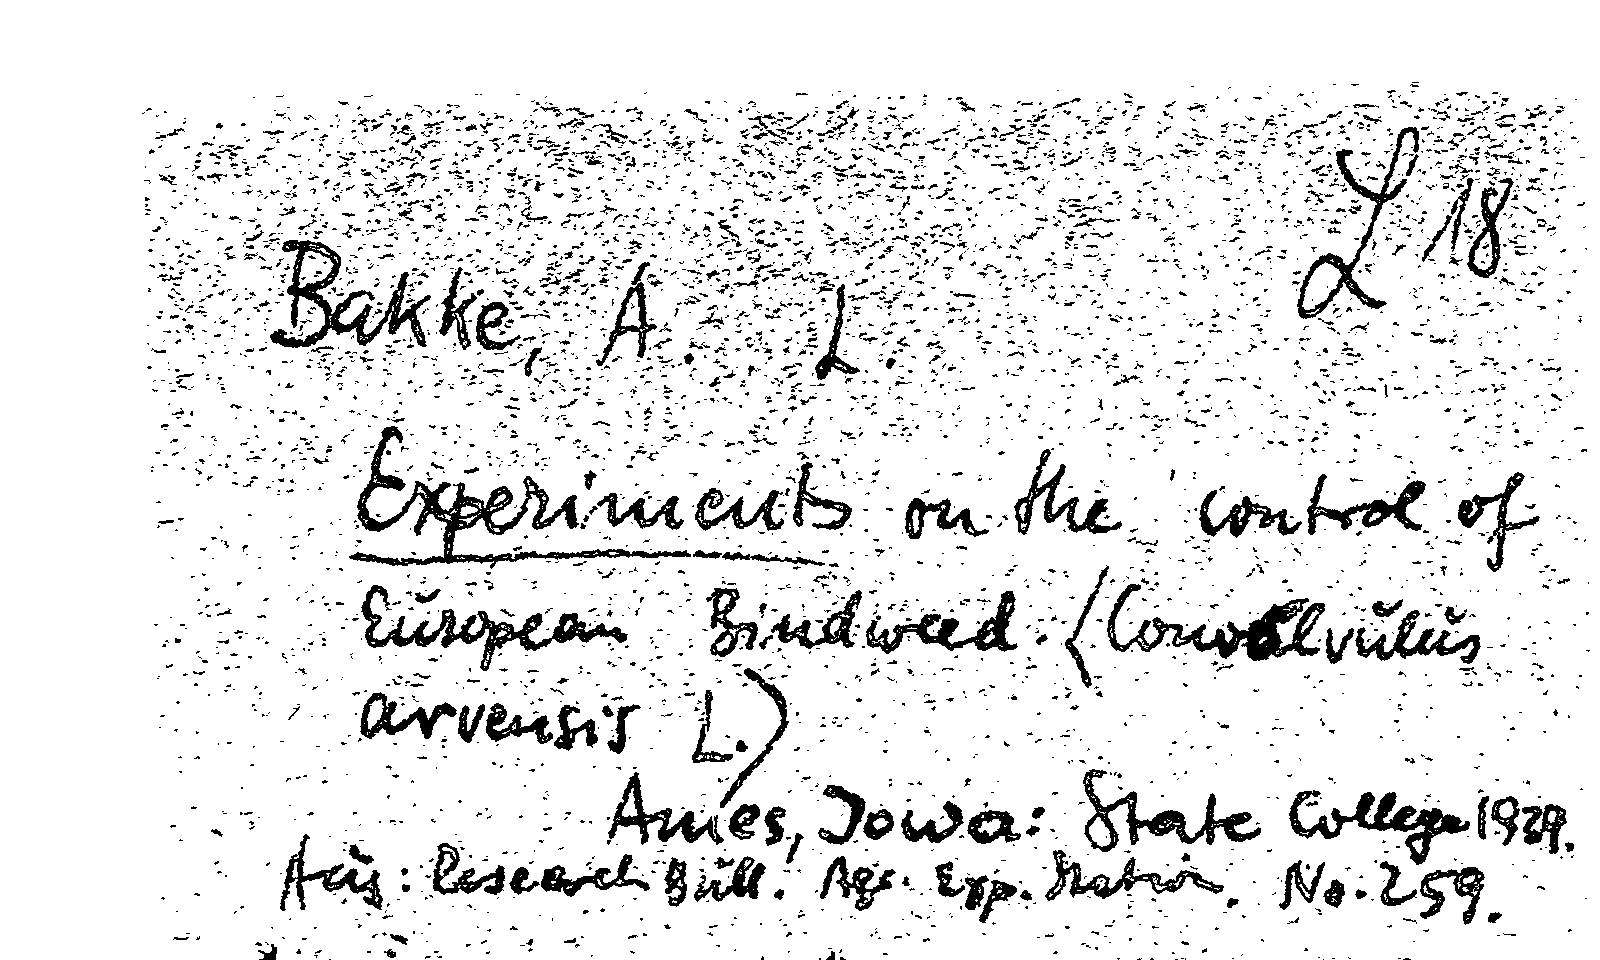 L 18
Bakke, A. L.
Experiments on the control of
European Bindweed. (Convolvulus
arvensis L.)
Ames, Iowa: State College 1939.
Aus: Research Bull. Agr. Exp. Station. No. 259.